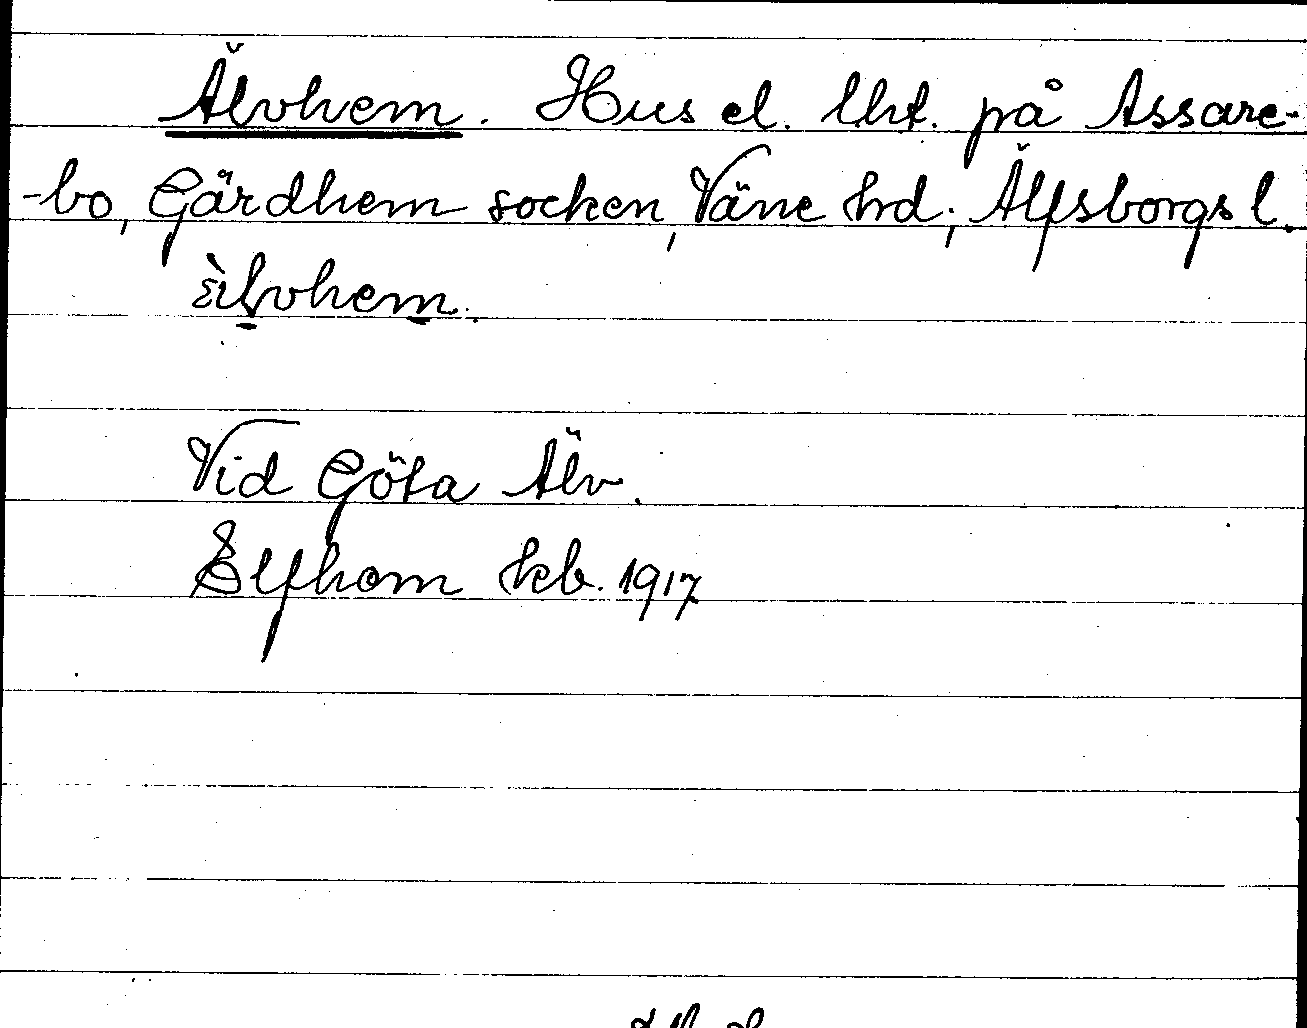 Älvhem. Hus el. lht. på Assare-
-bo, Gärdhem socken, Väne hrd; Älfsborgs l.
ɛ̀lvhem.
Vid Göta Älv.
Elfhem kb. 1917